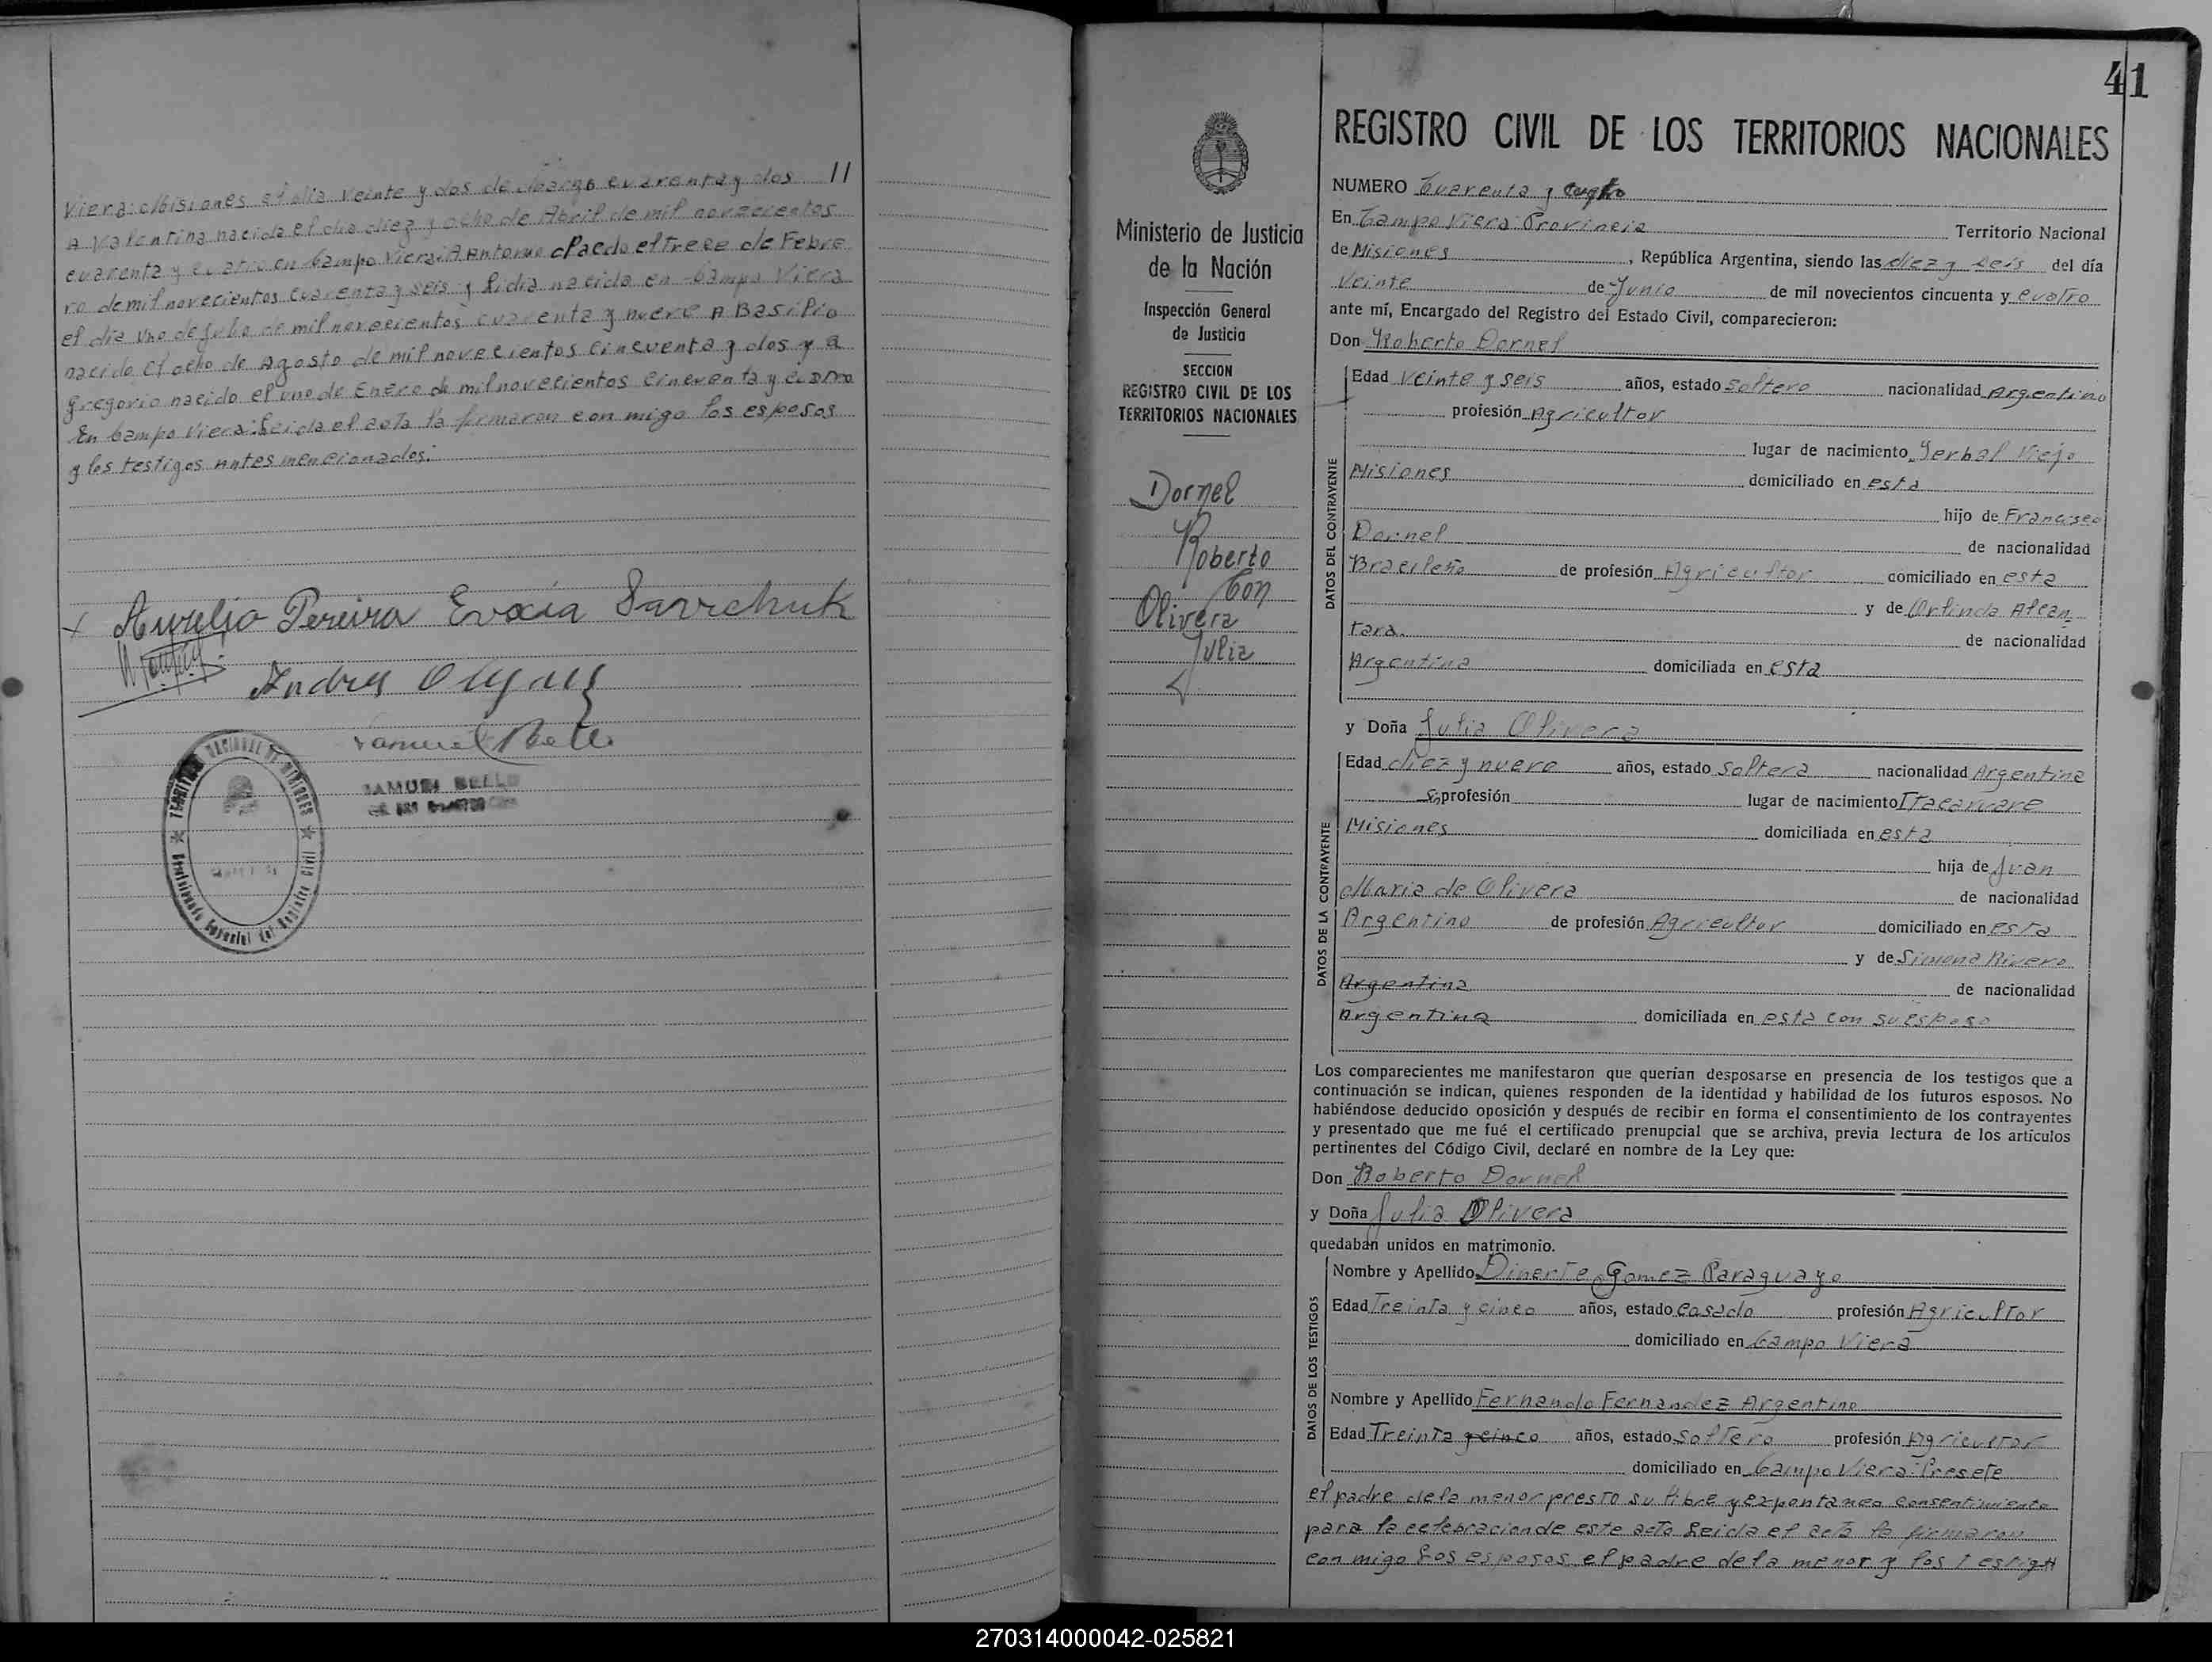 Viera: Misiones el dia veinte y dos de Marzo cuarenta y dos 11
A Valentina nacida el dia diez y ocho de Abril de mil novecientos
cuarenta y cuatro en Campo Viera: A Antonio Placdo el trece de Febre
ro de mil novecientos cuarenta y seis y Lidia nacida en Campo Viera
el dia uno de Julio de mil novecientos cuarenta y nueve A Basilio
nacido el ocho de Agosto de mil novecientos cincuenta y dos y a
Gregorio nacido el uno de Enero de mil novecientos cincuenta y cuatro
En Campo Viera: Leida el acta la firmaron con migo los esposos
y los testigos antes mencionados.
Aurelio Pereira
Samuel Bello
SAMUEL BELLO
41
Ministerio de Justicia
de la Nación
Inspección General
de Justicia
SECCION
REGISTRO CIVIL DE LOS
TERRITORIOS NACIONALES
Dornel
Roberto
Con
Olivera
Julia
REGISTRO CIVIL DE LOS TERRITORIOS NACIONALES
NUMERO Cuarenta y cuatro
En Campo Viera: Provincia Territorio Nacional
de Misiones, República Argentina, siendo las diez y seis del día
veinte de Junio de mil novecientos cincuenta y cuatro
ante mí, Encargado del Registro del Estado Civil, comparecieron:
Don Roberto Dornel
DATOS DEL CONTRAYENTE
Edad veinte y seis años, estado soltero nacionalidad Argentino
profesión Agricultor
lugar de nacimiento Yerbal Viejo
Misiones domiciliado en esta
hijo de Francisco
Dornel de nacionalidad
Bracileño de profesión Agricultor domiciliado en esta
y de Orlinda Alcan
tara. de nacionalidad
Argentina domiciliada en esta
y Doña Julia Olivera
DATOS DE LA CONTRAYENTE
Edad diez y nueve años, estado soltera nacionalidad Argentina
S/profesión lugar de nacimiento Itacaruare
Misiones domiciliada en esta
hija de Juan
Maria de Olivera de nacionalidad
Argentino de profesión Agricultor domiciliado en esta
y de Simona Rivero
Argentina de nacionalidad
Argentina domiciliada en esta con su esposo
Los comparecientes me manifestaron que querían desposarse en presencia de los testigos que a
continuación se indican, quienes responden de la identidad y habilidad de los futuros esposos. No
habiéndose deducido oposición y después de recibir en forma el consentimiento de los contrayentes
y presentado que me fué el certificado prenupcial que se archiva, previa lectura de los artículos
pertinentes del Código Civil, declaré en nombre de la Ley que:
Don Roberto Dornel
y Doña Julia Olivera
quedaban unidos en matrimonio.
DATOS DE LOS TESTIGOS
Nombre y Apellido Dinerte Gomez Paraguayo
Edad Treinta y cinco años, estado casado profesión Agricultor
domiciliado en Campo Viera
Nombre y Apellido Fernando Fernandez Argentino
Edad Treinta y cinco años, estado soltero profesión Agricultor
domiciliado en Campo Viera: Presete
el padre de la menor presto su libre y expontaneo consentimiento
para la celebracion de este acto Leida el acta la firmaron
con migo Los esposos el padre de la menor y los testigos
270314000042-025821